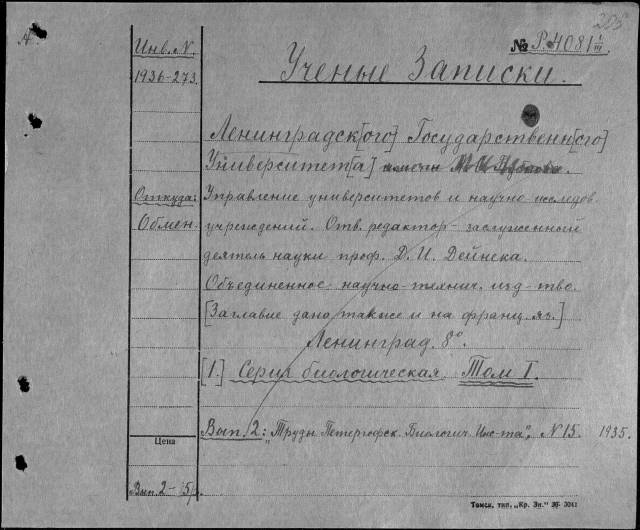 205
А.
Инв. N.
1936-273.
№ Р.4081 I/III.
Ученые Записки.
Ленинградск[ого] Государственн[ого]
Университет[а] имени
Откуда:
Обмен.
Управление университетов и научно-исследов.
учреждений. Отв. редактор - заслуженный
деятель науки проф. Д. И. Дейнека.
Объединенное научно-технич. изд-тво.
[Заглавие дано также и на франц. яз.]
Ленинград. 8°.
[1.] Серия биологическая. Том I.
Вып. 2: „Труды Петергофск. Биологич. Инс-та", N 15. 1935.
Цена
Вып. 2 - 5р.
Томск, тип. „Кр. Зн." 36- 3042